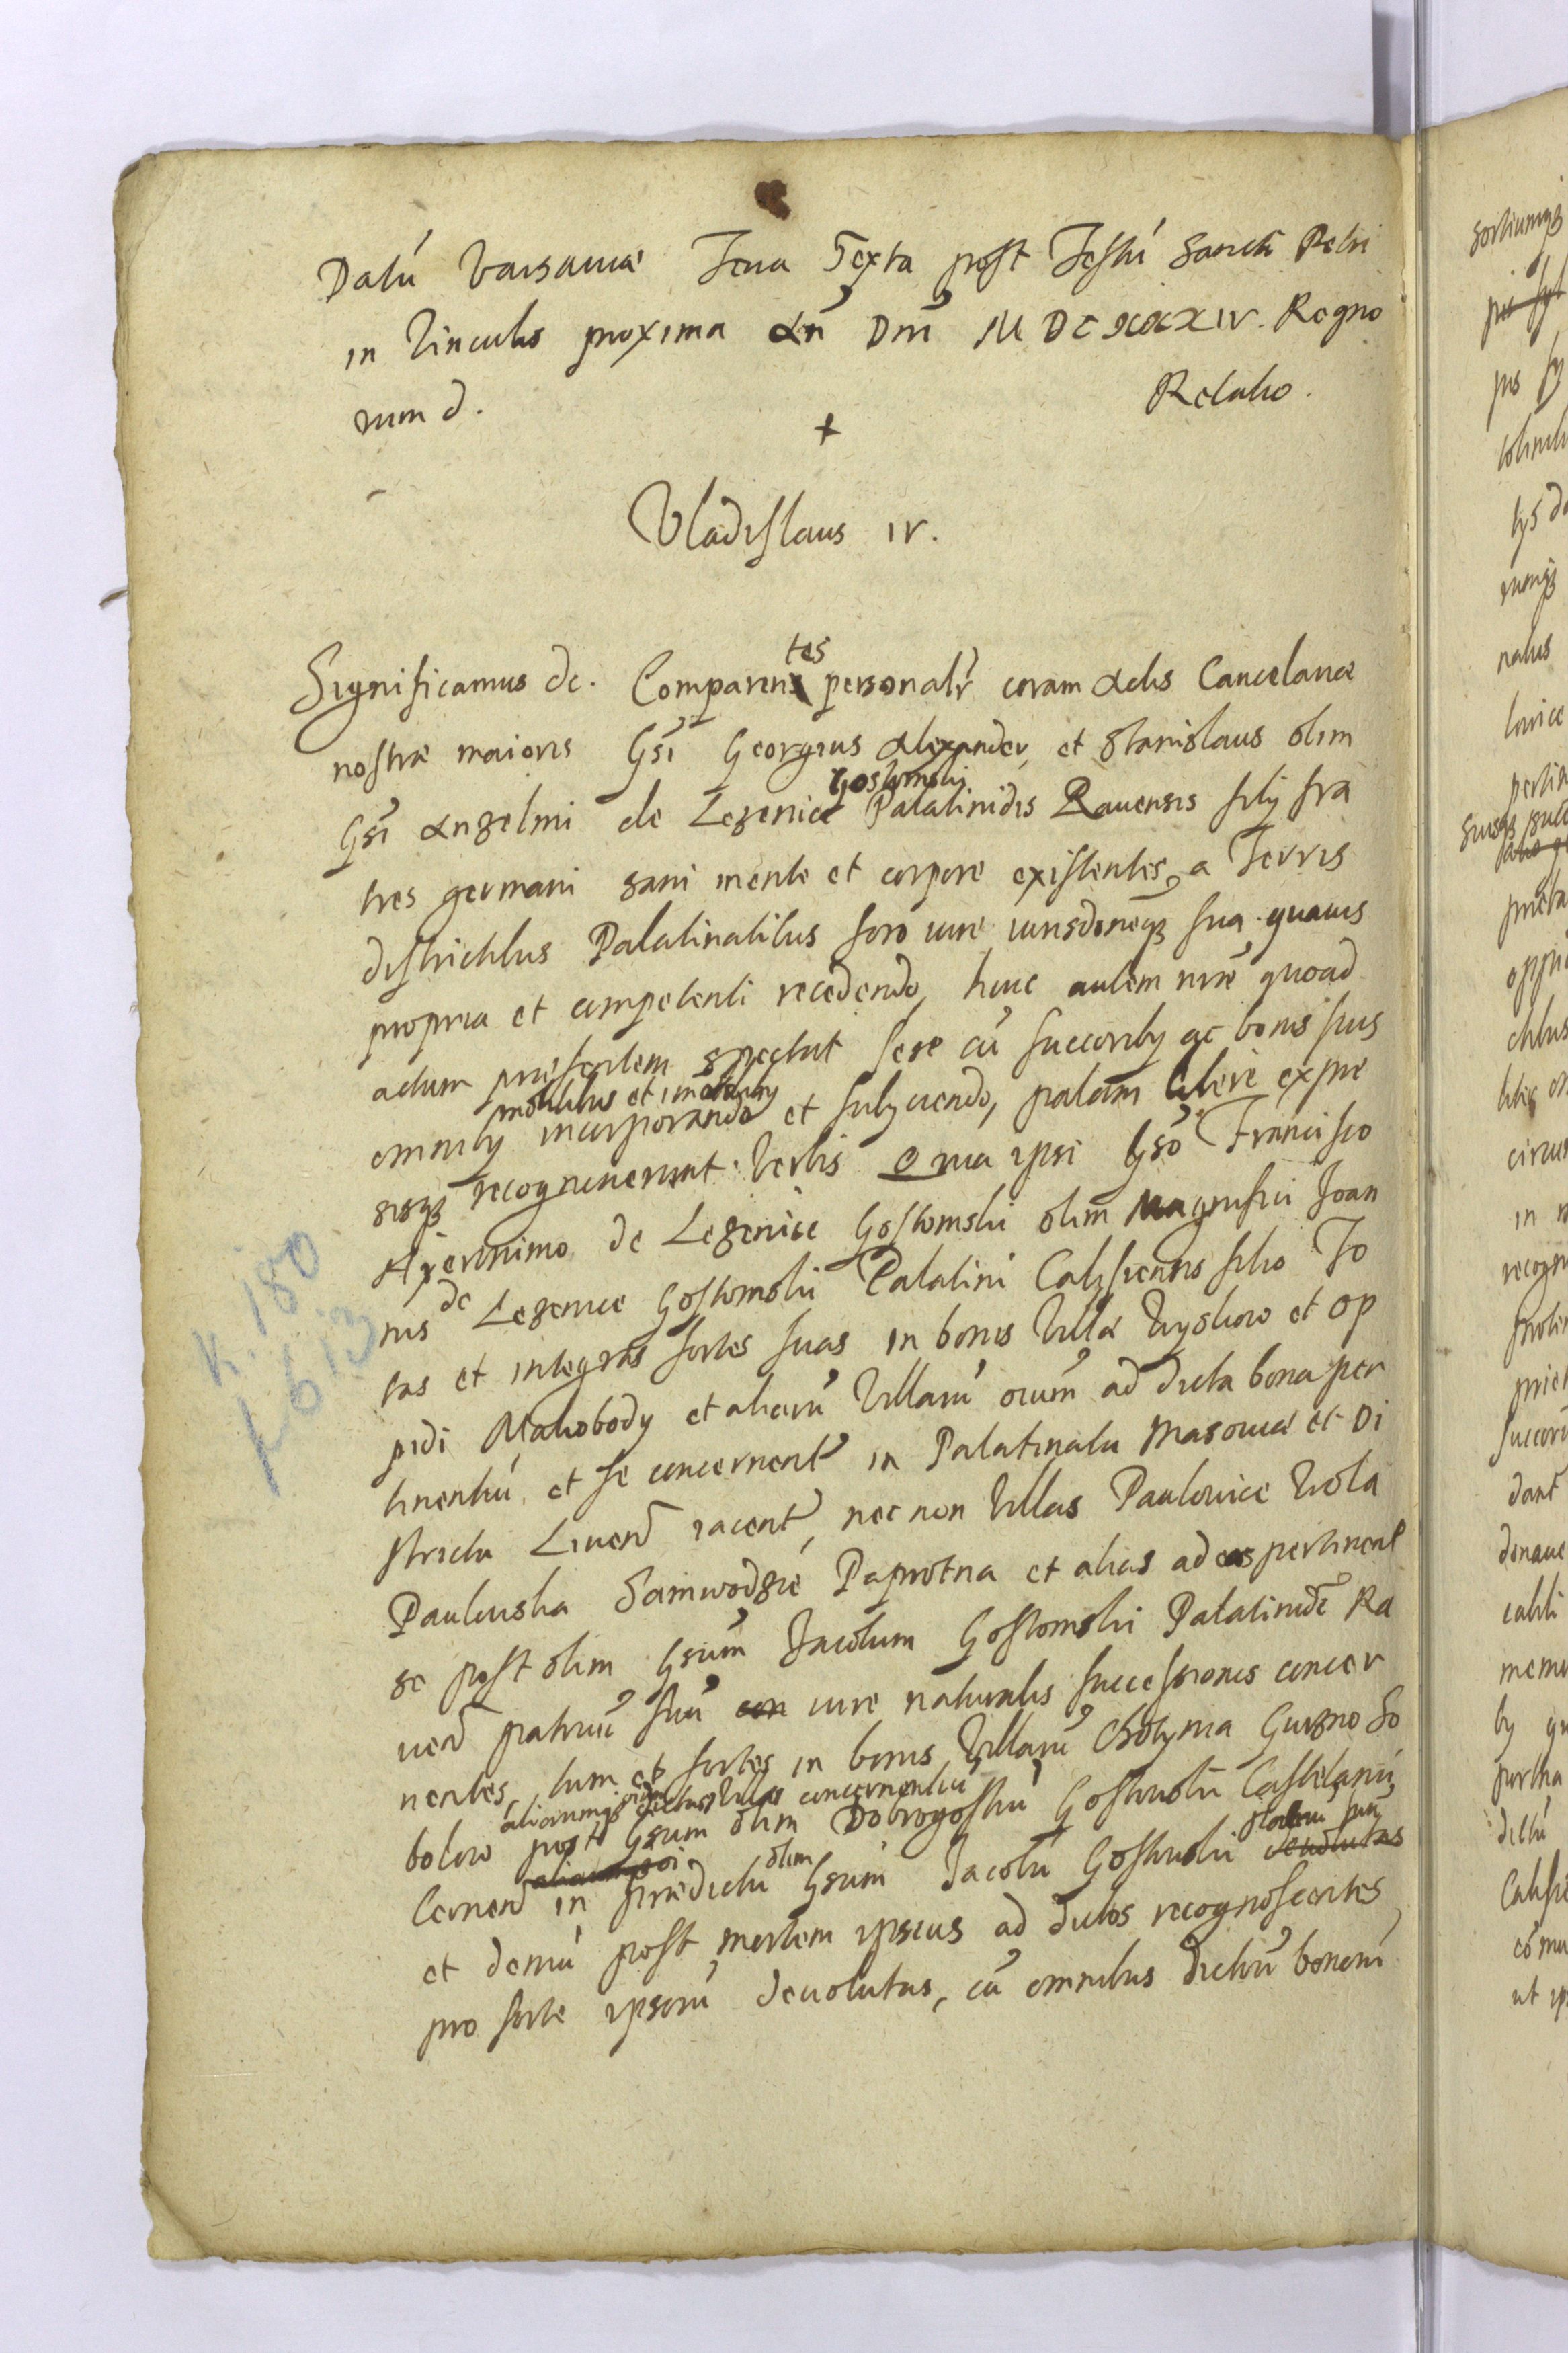 Datū Varsaviæ Feria Sexta post Festū Sancti Petri
in Vinculis proxima An̄ Dni M DC XXXIV. Regno
rum &.
Relatio.
+
Vladislaus IV.
Significamus &c. Comparentes personalr̄ coram Actis Cancelariæ
nostræ maioris Gsī Georgius Alexander, et Stanislaus olim
Gsī Anzelmi de Lezenice Gostomski Palatinidis Rauensis filij fra
tres germani sani mente et corpore existentes, a Terris
districtibus Palatinatibus foro iure iurisdoneqȝ sua quauis
propria et competenti recedendo, huic autem nrē quoad
actum præsentem spectat sese cū succoribȝ ac bonis suis
omnibȝ mobilibus et imobilibȝ incorporando et subijciendo, palam libere expre
sisqȝ recognouerunt verbis Quia ipsi Gsō Francisco
Hyeronimo de Lezenice Gostomski olim Magnifici Joan
nis de Lezenice Gostomski Palatini Calissiensis filio To
tas et integras sortes suas in bonis Villæ Wyskow et Op
pidi Mokobody et aliarū Villarū oium ad dicta bona per
tinentiū, et se concernent in Palatinatu Masoviæ et Di
strictu Liuen̄ iacent, nec non Villas Paulowice Wola
Paulouska Samwodzie Paprotna et alias ad eas pertinent
se post olim Gsum Jacobum Gostomski Palatinidē Ra
uen̄ patruū suū iure naturalis successionis concer
nentes, tum et sortes in bonis Villarū Chotynia Guzno So
bolow aliarumqȝ ad dictas Villas concernentiū post Gsum olim Dobrogostiū Gostomski Castelanū
Cernen̄ in prædictū olim Gsum Jacobū Gostomski devolutas
et demū post mortem ipsius ad dictos recognoscentes
pro sorte ipsorū devolutas, cū omnibus dictorū bonorū
K. 180
f. 613